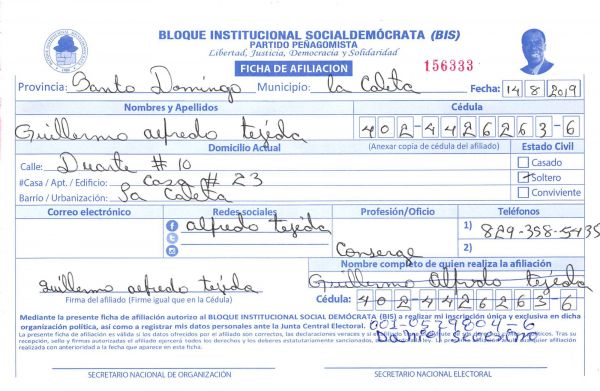 BLOQUE INSTITUCIONAL SOCIALDEMÓCRATA (BIS)
PARTIDO PEÑAGOMISTA
Libertad, Justicia, Democracia y Solidaridad
FICHA DE AFILIACION
156333
Provincia: Santo Domingo Municipio: La Caleta Fecha: 14 8 2019
Nombres y Apellidos Cédula
Guillermo alfredo tejeda 402-4426263-6
Domicilio Actual (Anexar copia de cédula del afiliado) Estado Civil
Calle: Duarte # 10 Casado
#Casa / Apt. / Edificio: Casa # 23 Soltero
Barrio / Urbanización: La Caleta Conviviente
Correo electrónico Redes sociales Profesión/Oficio Teléfonos
alfredo tejida 1) 829-358-5435
Conserge 2)
Nombre completo de quien realiza la afiliación
guillermo alfredo tejida Guillermo Alfredo tejeda
Firma del afiliado (Firme igual que en la Cédula) Cédula: 402-4426263-6
Mediante la presente ficha de afiliación autorizo al BLOQUE INSTITUCIONAL SOCIAL DEMÓCRATA (BIS) a realizar mi inscripción única y exclusiva en dicha
organización política, así como a registrar mis datos personales ante la Junta Central Electoral. 001-0529804-6
La presente ficha de afiliación es válida si los datos ofrecidos por el afiliado son correctos, las declaraciones veraces y si el afiliado
recepción, sello y firmas autorizadas el afiliado ejercerá todos los derechos y los deberes estatutariamente sancionados,
realizada con anterioridad a la fecha que aparece en esta ficha.
SECRETARIO NACIONAL DE ORGANIZACIÓN SECRETARIO NACIONAL ELECTORAL